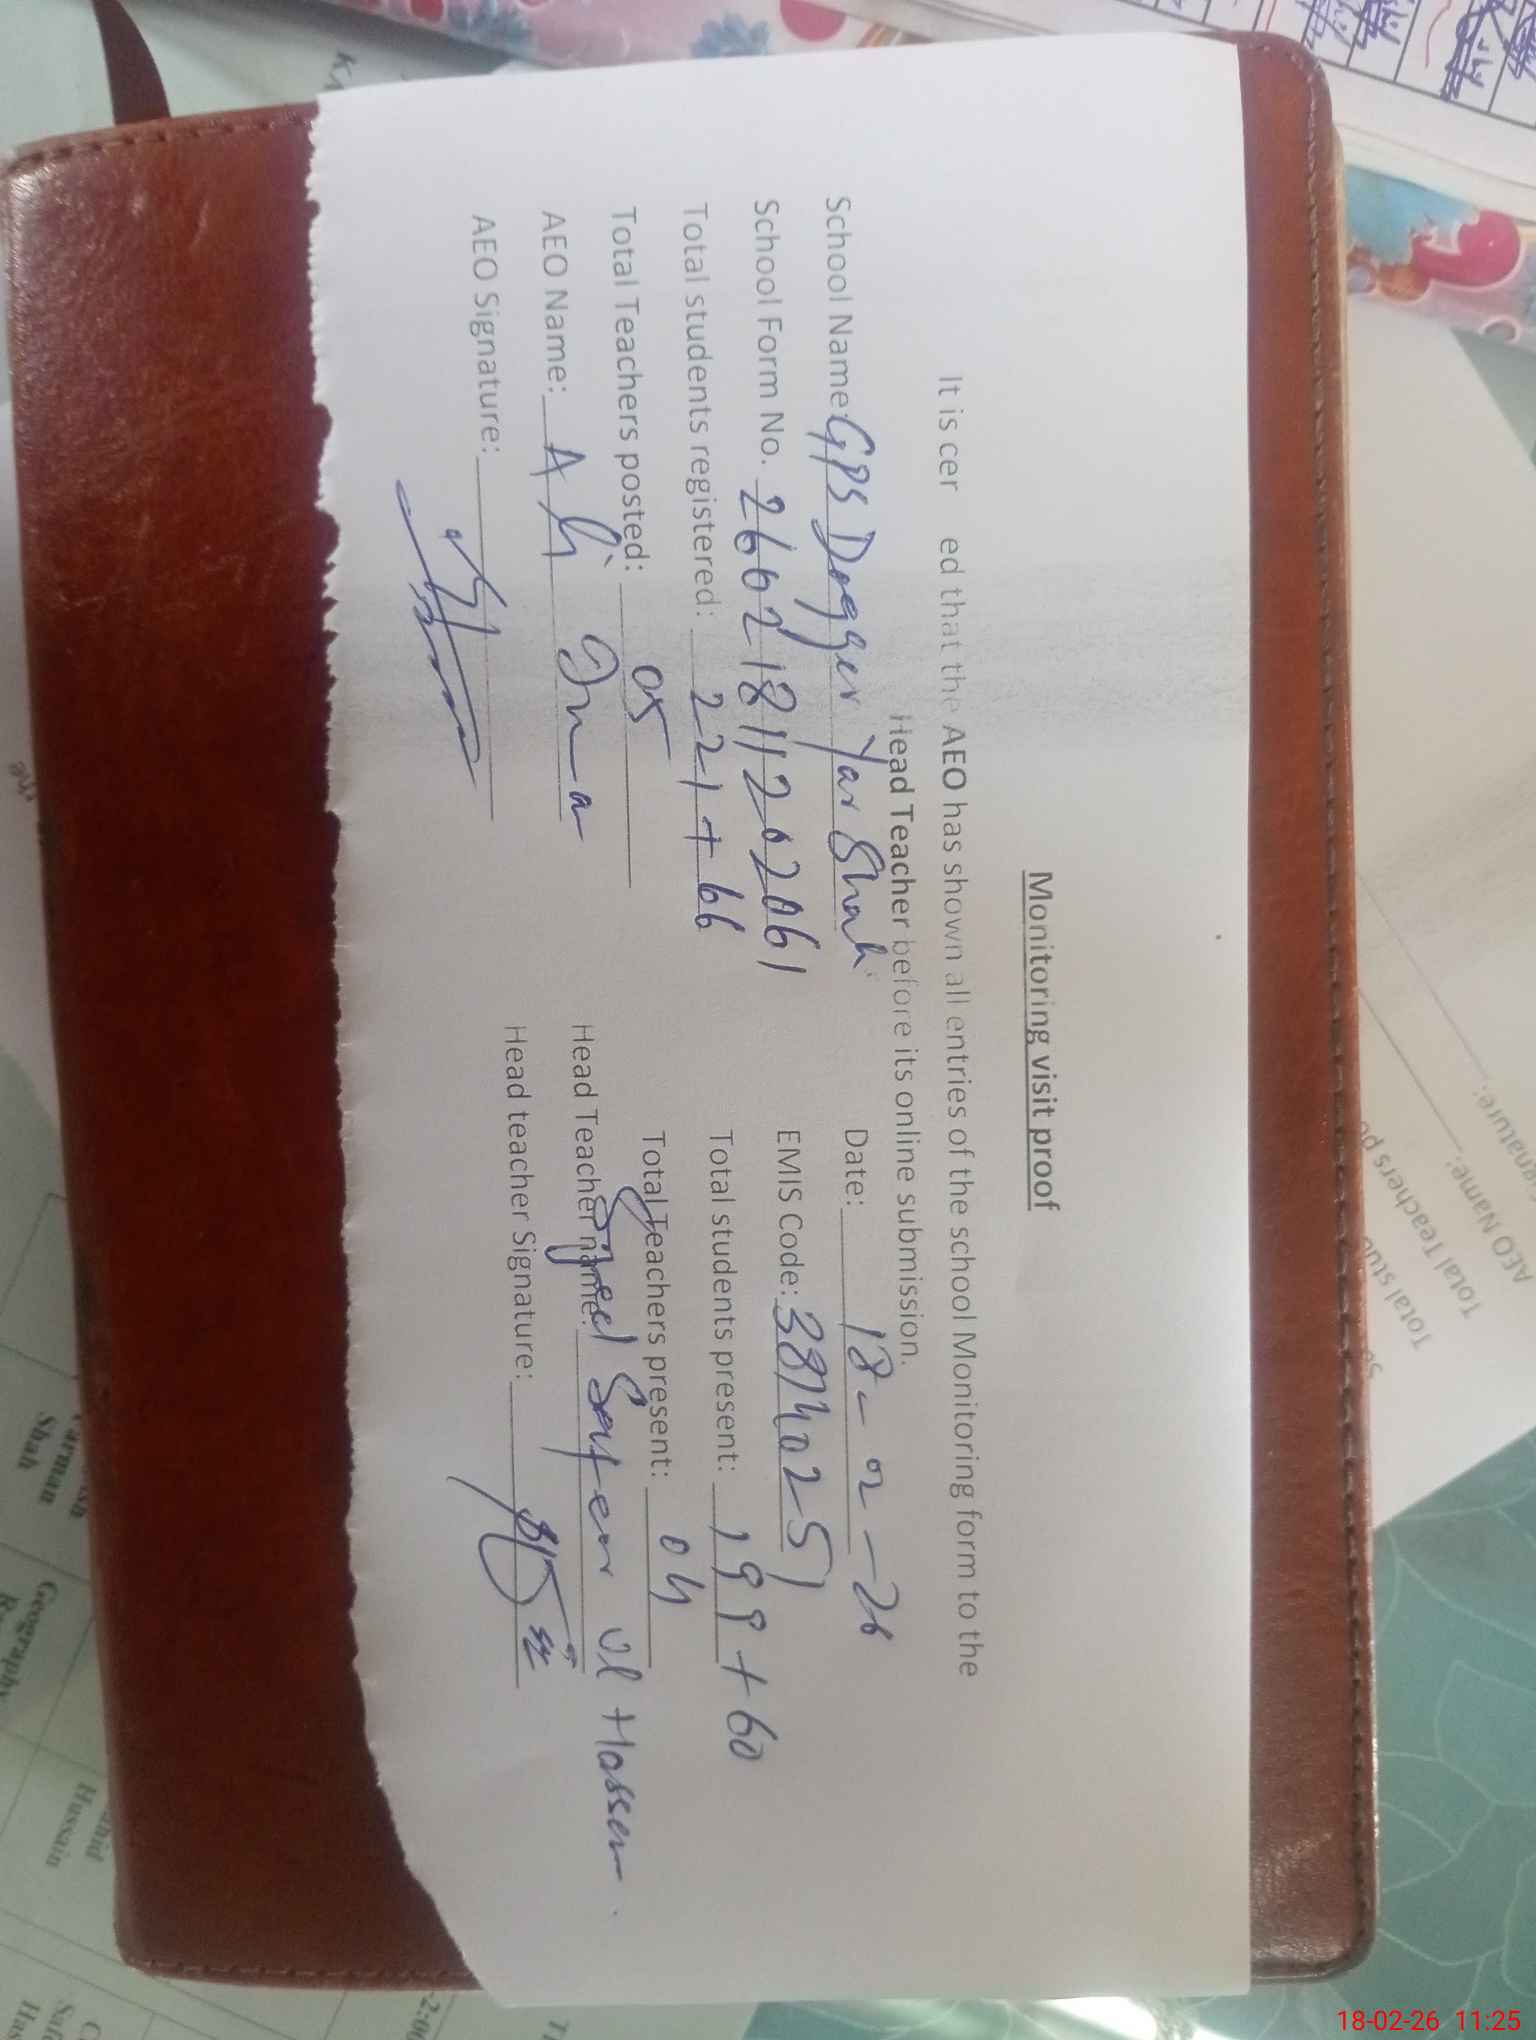 Monitoring visit proof
It is cer ed that the AEO has shown all entries of the school Monitoring form to the
Head Teacher before its online submission.
School Name: GPS Dogger Yar Shah Date: 18-02-26
School Form No. 26621811202061 EMIS Code: 38140251
Total students registered: 221+66 Total students present: 199+60
Total Teachers posted: 05 Total Teachers present: 04
AEO Name: Ali Head Teacher name: Syed ul Hassen.
AEO Signature: Head teacher Signature:
Total Teachers
AEO Name:
Shah
Geography
Hussain
18-02-26 11:25